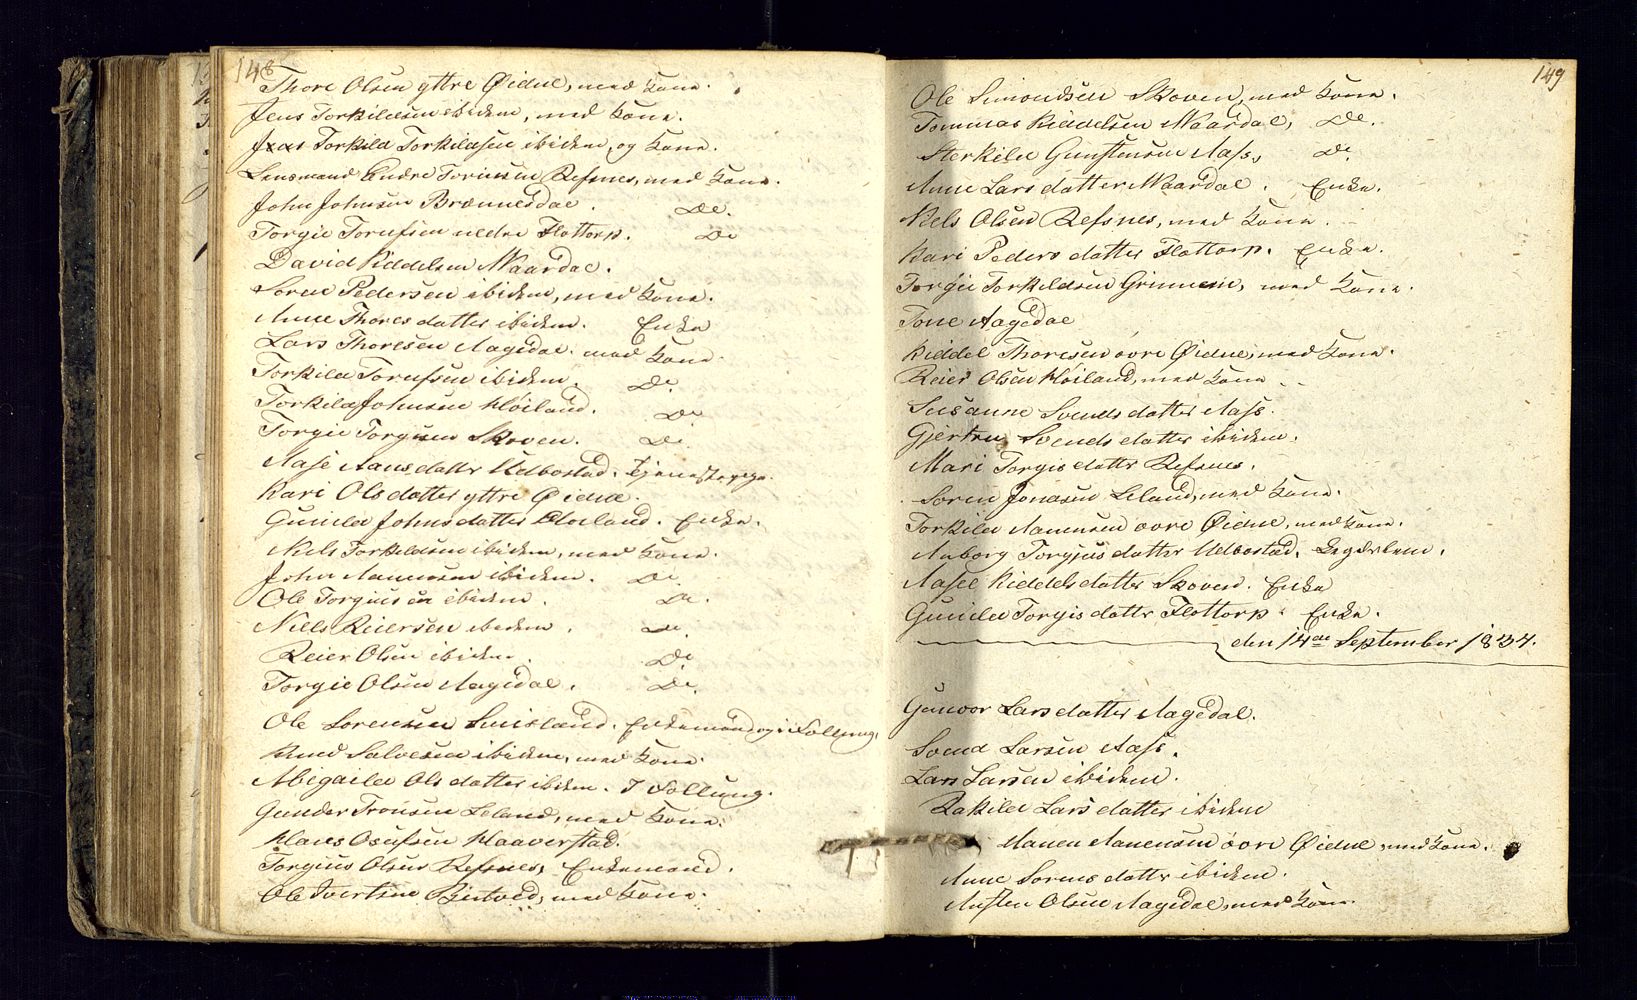 148
Thore Olsen yttre Øidne, med Kone.
Jens Torkildsen ibidem, med Kone.
Torkild Torkildsen ibidem, og Kone.
Lensmand Endre Toriussen Refsnes, med Kone.
John Johnsen Brønnesdal. Do.
Torgie Torufsen nedre Flottorp. Do
David Kiddelsen Waardal.
Soren Pedersen ibidem, med Kone.
Anne Thores datter ibidem. Enke
Lars Thoresen Aagedal. med Kone.
Torkild Torufsen ibidem. Do.
Torkild Johnsen Høiland. Do
Torgie Torgisen Skoven. Do.
Aase Aans datter Udbostad. tjenestepige.
Kari Ols datter yttre Øidne.
Gunild Johns datter Høiland. Enke.
Niels Torkildsen ibidem, med Kone.
John Aanensen ibidem. Do.
Ole Torgiusen ibidem. Do.
Niels Reiersen ibidem. Do.
Reier Olsen ibidem. Do.
Torgie Olsen Aagedal. Do.
Ole Sorensen Enkemand og i Follung.
Knud Salvesen ibidem, med Kone.
Abigaild Ols datter ibidem. I Follung.
Gunder Tronsen Leland, med Kone.
Klaus Osufsen Haaverstad.
Torgius Olsen Refsnes, Enkemand.
Ole Ivertsen med Kone.
149
Ole Simondsen Skoven, med Kone.
Tommas Kiddelsen Waardal, Do.
Storkild Gunstensen Aass, Do.
Anne Lars datter Waardal. Enke.
Niels Olsen Refsnes, med Kone.
Kari Peders datter Flottorp. Enke.
Torgie Torkildsen Grimnem, med Kone.
Tone Aagedal
Kiddel Thoresen øvre Øidne, med Kone.
Reier Olsen Høiland, med Kone.
Susanne Svends datter Aass.
Gjertru Svends datter ibidem.
Mari Torgis datter Refsnes.
Soren Jonasen Leland, med Kone.
Torkild Aanensen øvre Øidne, med Kone.
Anborg Torgjus datter Udbostad. Legdelem.
Aasel Kiddels datter Skoven. Enke
Gunild Torgis datter Flottorp. Enke.
den 14de September 1834.
Gunvor Lars datter Aagedal.
Svend Larsen Aass.
Lars Larsen ibidem.
Rakild Lars datter ibidem
Aanen Aanensen øvre Øidne, med Kone.
Anne Sorens datter ibidem.
Austen Olsen Aagedal, med Kone.